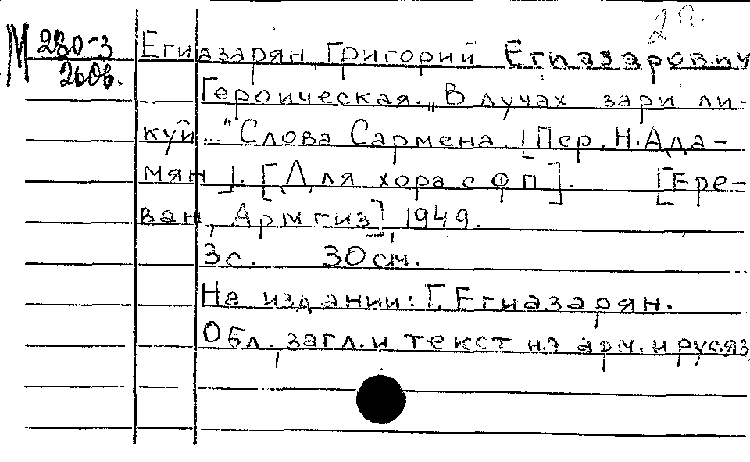 2я.
М 280-3
260в.
Егиазарян, Григорий Егиазарович
Героическая. „В лучах зари ли-
куй..." Слова Сармена. [Пер. Н. Ада-
мян]. [Для хора с фп]. [Ере-
ван, Армгиз], 1949.
3с. 30 см.
На издании: Г. Егиазарян.
Обл., загл. и текст на арм. и рус. яз